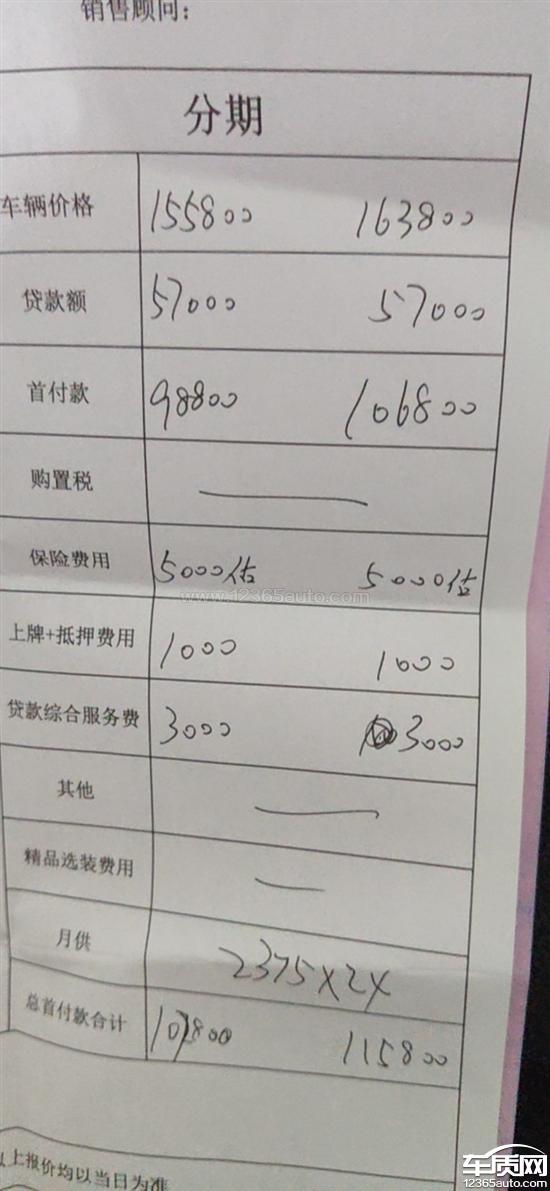 销售顾问：
分期
车辆价格 155800 163800
贷款额 57000 57000
首付款 98800 106800
购置税
保险费用 5000估 5000估
www.12365auto.com
上牌+抵押费用 1000 1000
贷款综合服务费 3000 3000
其他
精品选装费用
月供 2375X24
总首付款合计 107800 115800
以上报价均以当日为准
车质网
12365auto.com